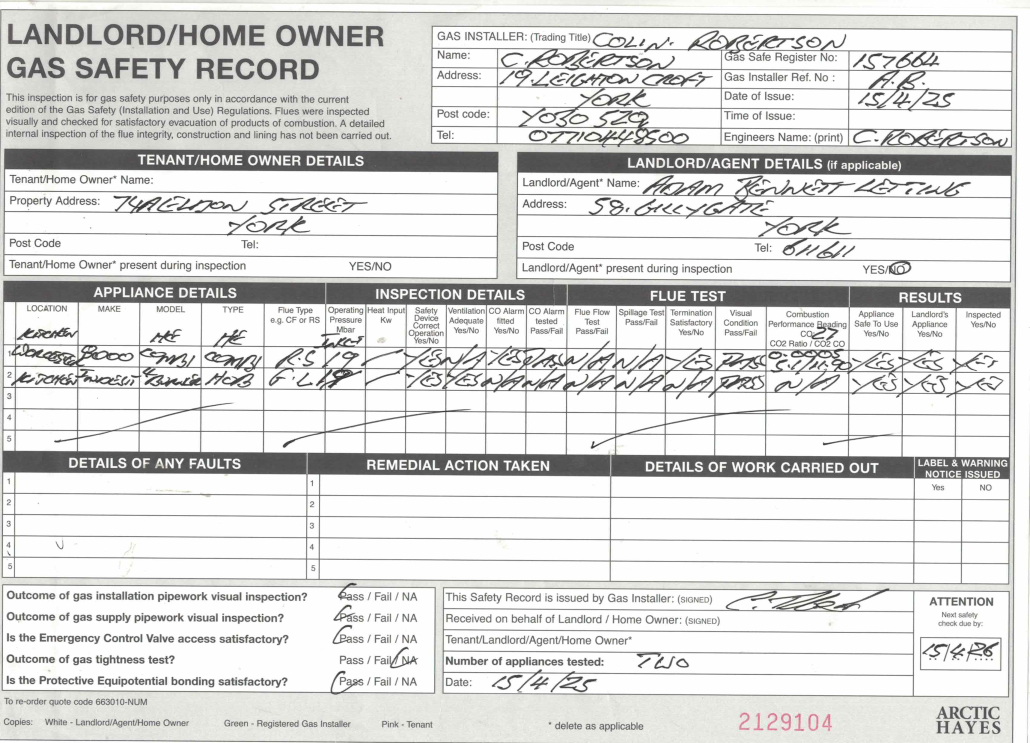 LANDLORD/HOME OWNER
GAS SAFETY RECORD
This inspection is for gas safety purposes only in accordance with the current
edition of the Gas Safety (Installation and Use) Regulations. Flues were inspected
visually and checked for satisfactory evacuation of products of combustion. A detailed
internal inspection of the flue integrity, construction and lining has not been carried out.
GAS INSTALLER: (Trading Title) COLIN. ROBERTSON
Name: C. ROBERTSON
Address: 19. LEIGHTON CROFT
YORK
Post code: YO30 5ZQ
Tel: 07710448500
Gas Safe Register No: 157664
Gas Installer Ref. No : A.R.
Date of Issue: 15/4/25
Time of Issue:
Engineers Name: (print) C. ROBERTSON
TENANT/HOME OWNER DETAILS
Tenant/Home Owner* Name:
Property Address: 74A ELDON STREET
YORK
Post Code Tel:
Tenant/Home Owner* present during inspection YES/NO
LANDLORD/AGENT DETAILS (if applicable)
Landlord/Agent* Name: ADAM BENNETT LETTING
Address: 58. GILLYGATE
YORK
Post Code Tel: 611611
Landlord/Agent* present during inspection YES/NO
APPLIANCE DETAILS INSPECTION DETAILS FLUE TEST RESULTS
LOCATION MAKE MODEL TYPE Flue Type e.g. CF or RS Operating Pressure Mbar Heat Input Kw Safety Device Correct Operation Yes/No Ventilation Adequate Yes/No CO Alarm fitted Yes/No CO Alarm tested Pass/Fail Flue Flow Test Pass/Fail Spillage Test Pass/Fail Termination Satisfactory Yes/No Visual Condition Pass/Fail Combustion Performance Reading CO CO2 Ratio / CO2 CO Appliance Safe To Use Yes/No Landlord's Appliance Yes/No Inspected Yes/No
KITCHEN HE HE INLET 27
1 WORCESTER 8000 COMBI COMBI R.S 19 YES N/A YES PASS N/A N/A YES PASS 0.0005 YES YES YES
2 KITCHEN INDESIT 4 BURNER HOB F.L 19 YES YES N/A N/A N/A N/A N/A PASS N/A YES YES YES
3
4
5
DETAILS OF ANY FAULTS REMEDIAL ACTION TAKEN DETAILS OF WORK CARRIED OUT LABEL & WARNING NOTICE ISSUED
Yes NO
1 1
2 2
3 3
4 4
5 5
Outcome of gas installation pipework visual inspection? Pass / Fail / NA
Outcome of gas supply pipework visual inspection? Pass / Fail / NA
Is the Emergency Control Valve access satisfactory? Pass / Fail / NA
Outcome of gas tightness test? Pass / Fail / NA
Is the Protective Equipotential bonding satisfactory? Pass / Fail / NA
This Safety Record is issued by Gas Installer: (SIGNED)
Received on behalf of Landlord / Home Owner: (SIGNED)
Tenant/Landlord/Agent/Home Owner*
Number of appliances tested: TWO
Date: 15/4/25
ATTENTION
Next safety
check due by:
15/4/26
To re-order quote code 663010-NUM
Copies: White - Landlord/Agent/Home Owner Green - Registered Gas Installer Pink - Tenant * delete as applicable
2129104
ARCTIC
HAYES